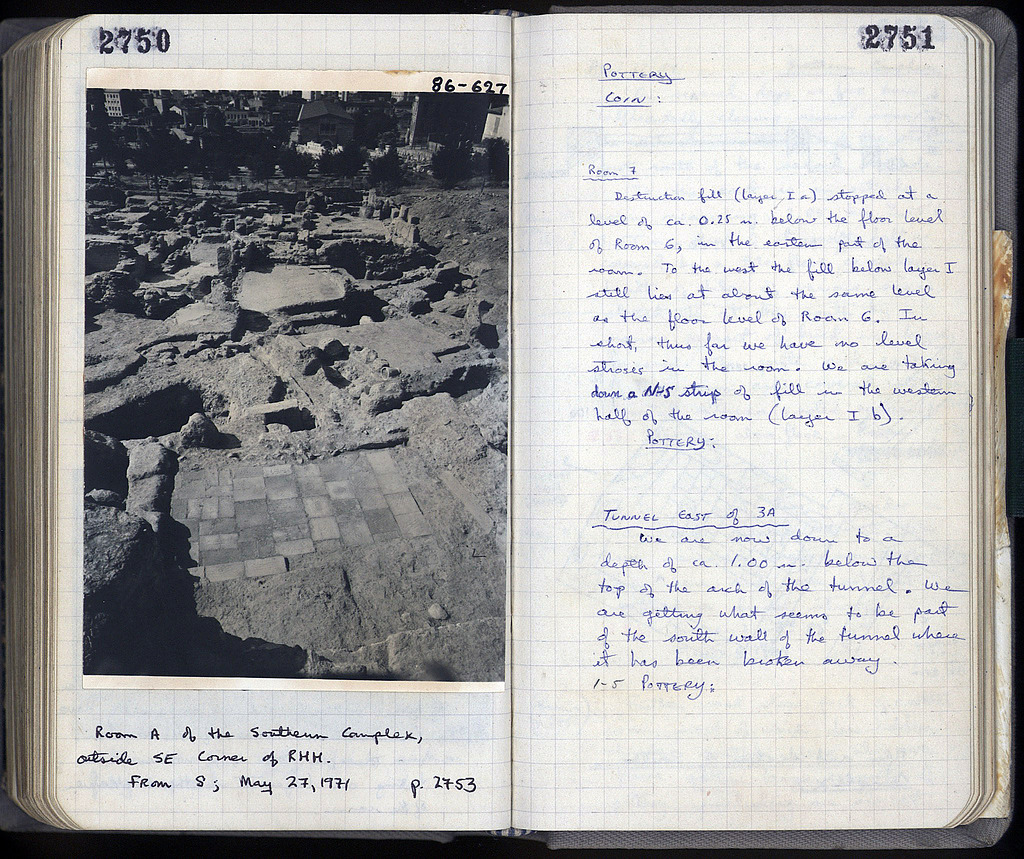 2750
86-627
Room A of the Southern Complex,
outside SE Corner of RHH.
From S; May 27, 1971 p. 2753
2751
POTTERY
COIN:
Room 7
Destruction fill (layer I a) stopped at a
level of ca. 0.25 m. below the floor level
of Room 6, in the eastern part of the
room. To the west the fill below layer I
still lies at about the same level
as the floor level of Room 6. In
short, thus far we have no level
stroses in the room. We are taking
down a N-S strip of fill in the western
half of the room (layer I b).
POTTERY:
TUNNEL EAST of 3A
We are now down to a
depth of ca. 1.00 m. below the
top of the arch of the tunnel. We
are getting what seems to be part
of the south wall of the tunnel where
it has been broken away.
1-5 POTTERY: